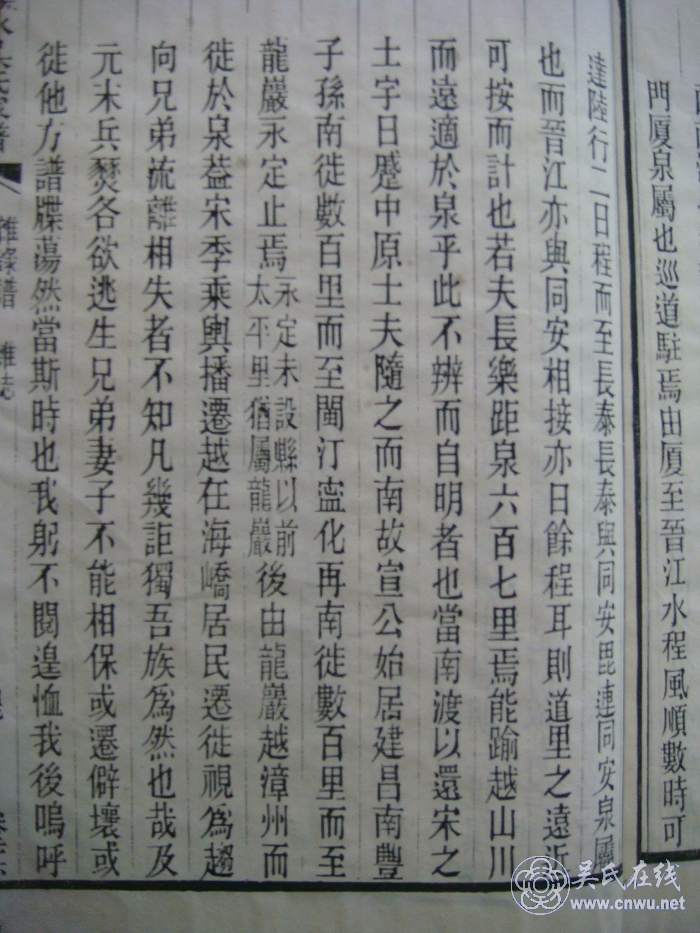 門廈泉屬也巡道駐焉由廈至晉江水程風順數時可
達陸行二日程而至長泰長泰與同安毘連同安泉屬
也而晉江亦與同安相接亦日餘程耳則道里之遠近
可按而計也若夫長樂距泉六百七里焉能踰越山川
而遠適於泉乎此不辨而自明者也當南渡以還宋之
土宇日蹙中原士夫隨之而南故宣公始居建昌南豐
子孫南徙數百里而至閩汀寧化再南徙數百里而至
龍巖永定止焉永定未設縣以前太平里猶屬龍巖後由龍巖越漳州而
徙於泉葢宋季乘輿播遷越在海嶠居民遷徙視為趨
向兄弟流離相失者不知凡幾詎獨吾族為然也哉及
元末兵燹各欲逃生兄弟妻子不能相保或遷僻壤或
徙他方譜牒蕩然當斯時也我躬不閱遑恤我後嗚呼
雜錄譜 雜誌
吳氏在線
www.cnwu.net